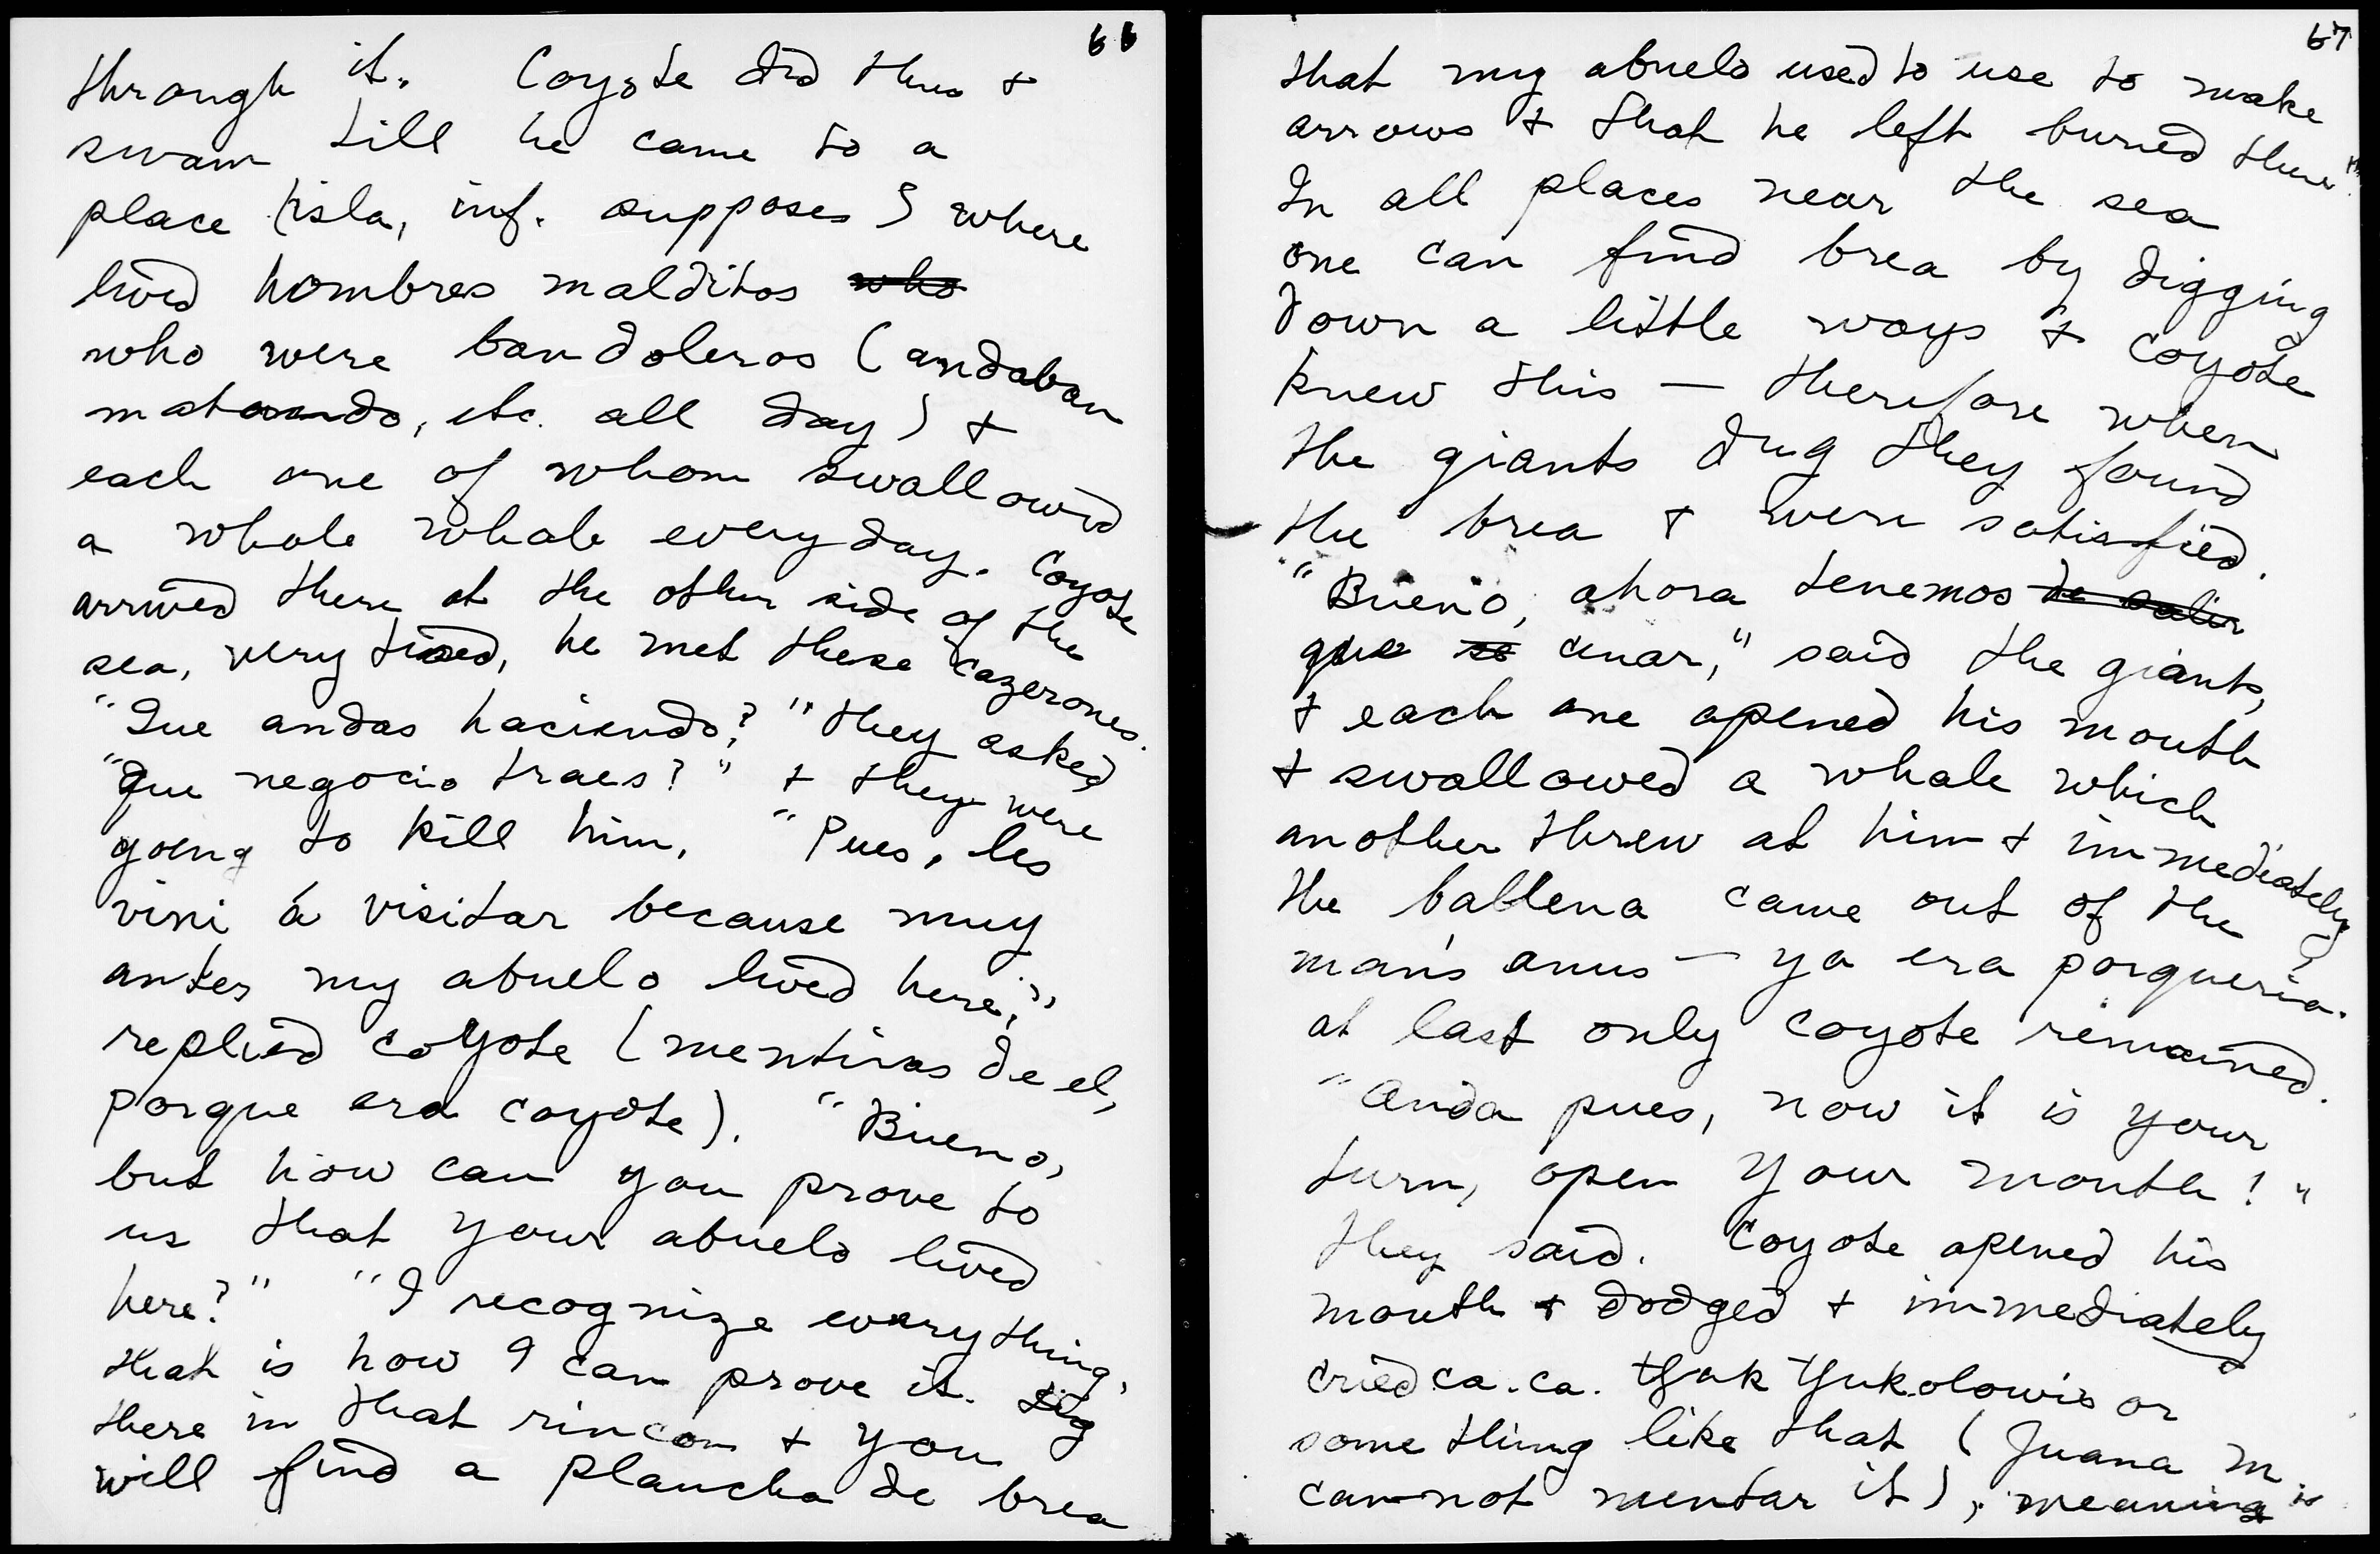 66
through it. Coyote did this &
swam till he came to a
place (isla, inf. supposes) where
lived hombres malditos who
who were bandoleros (andaban
matando, etc. all day) &
each one of whom swallowed
a whole whale every day. Coyote
arrived there at the other side of the
sea, very tired, he met these cazerones.
"Que andas haciendo?" they asked
"Que negocio traes?" & they were
going to kill him. "Pues, les
vini á visitar because muy
antes my abuelo lived here,"
replied coyote (mentiras de el,
porque era coyote). "Bueno,
but how can you prove to
us that your abuelo lived
here?" "I recognize everything,
that is how I can prove it. Dig
there in that rincon & you
will find a plancha de brea
67
that my abuelo used to use to make
arrows & that he left buried there".
In all places near the sea
one can find brea by digging
down a little ways & coyote
knew this — therefore when
the giants dug they found
the brea & were satisfied.
"Bueno, ahora tenemos de salir
que se cenar," said the giants,
& each one opened his mouth
& swallowed a whale which
another threw at him & immediately
the ballena came out of the
man's anus — ya era porqueria.
at last only coyote remained.
"Anda pues, now it is your
turn, open your mouth!"
they said. Coyote opened his
mouth & dodged & immediately
cried ca. ca. or
something like that (Juana M.
cannot mentar it), meaning is